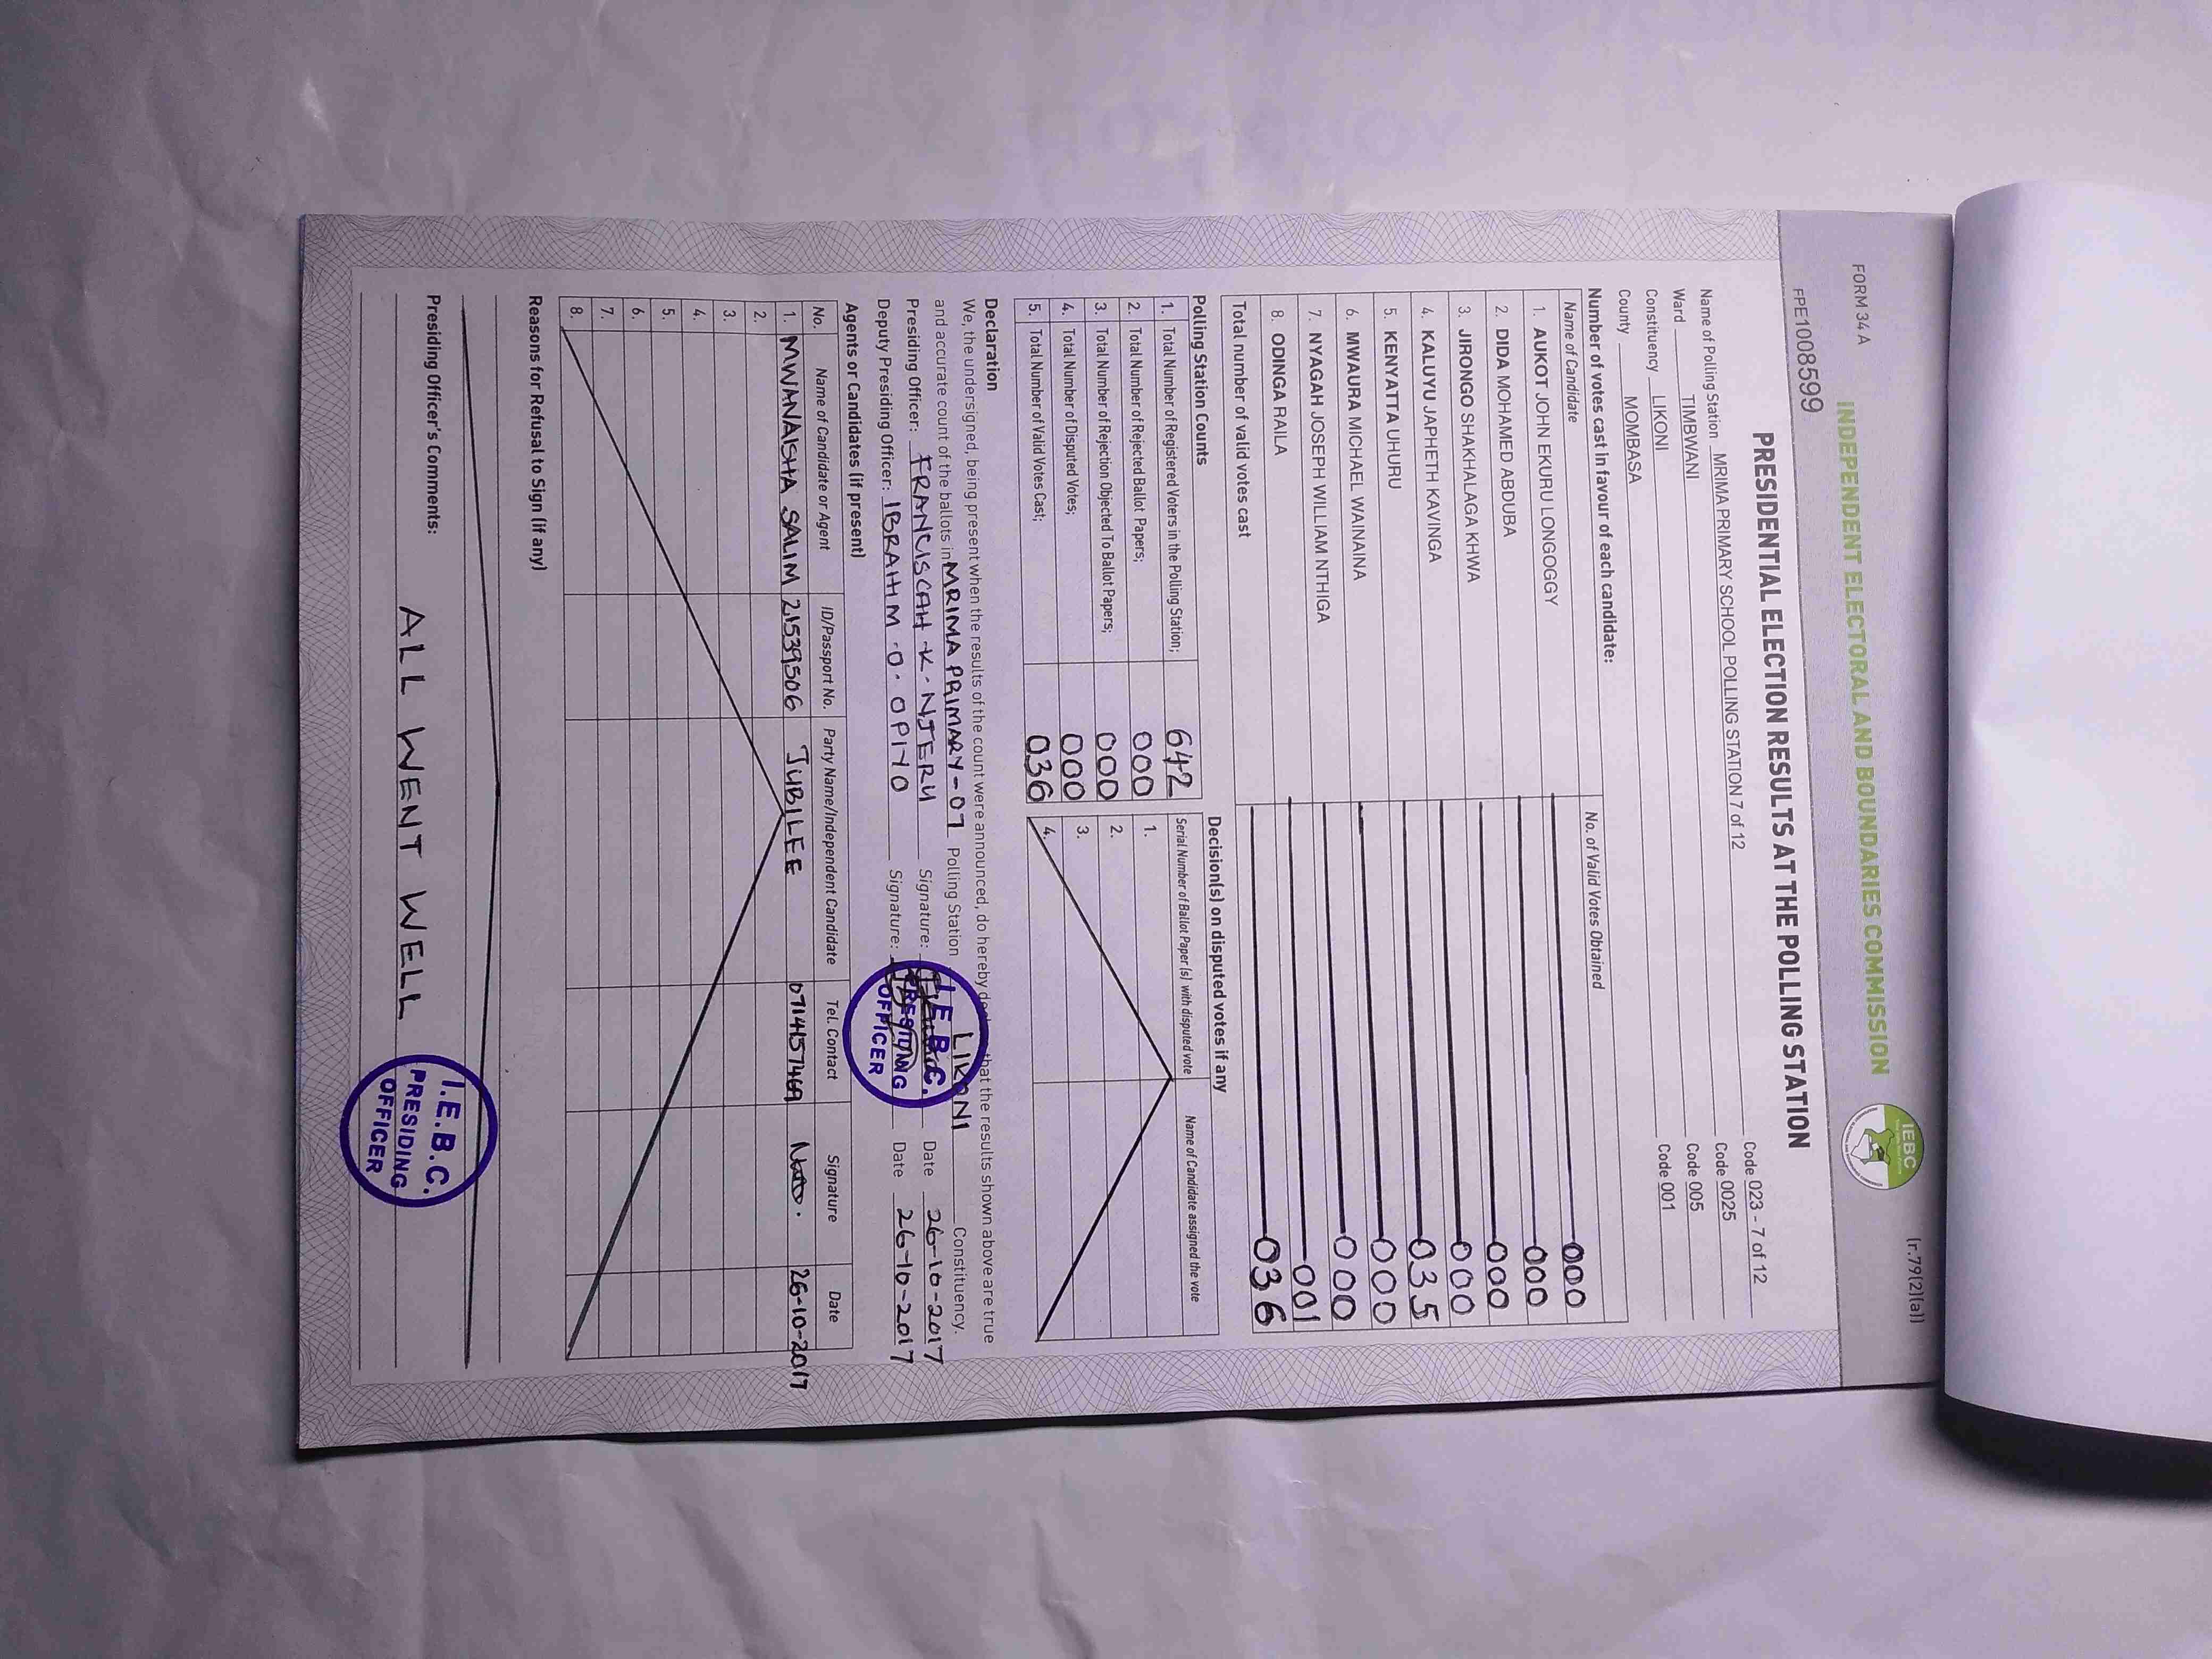 FORM 34 A
(r.79(2)(a))
INDEPENDENT ELECTORAL AND BOUNDARIES COMMISSION
IEBC
FPE1008599
PRESIDENTIAL ELECTION RESULTS AT THE POLLING STATION
Name of Polling Station MRIMA PRIMARY SCHOOL POLLING STATION 7 of 12 Code 023 - 7 of 12
Ward TIMBWANI Code 0025
Constituency LIKONI Code 005
County MOMBASA Code 001
Number of votes cast in favour of each candidate:
Name of Candidate No. of Valid Votes Obtained
1. AUKOT JOHN EKURU LONGOGGY 000
2. DIDA MOHAMED ABDUBA 000
3. JIRONGO SHAKHALAGA KHWA 000
4. KALUYU JAPHETH KAVINGA 000
5. KENYATTA UHURU 035
6. MWAURA MICHAEL WAINAINA 000
7. NYAGAH JOSEPH WILLIAM NTHIGA 000
8. ODINGA RAILA 001
Total number of valid votes cast 036
Polling Station Counts
1. Total Number of Registered Voters in the Polling Station; 642
2. Total Number of Rejected Ballot Papers; 000
3. Total Number of Rejection Objected To Ballot Papers; 000
4. Total Number of Disputed Votes; 000
5. Total Number of Valid Votes Cast; 036
Decision(s) on disputed votes if any
Serial Number of Ballot Paper (s) with disputed vote Name of Candidate assigned the vote
1.
2.
3.
4.
Declaration
We, the undersigned, being present when the results of the count were announced, do hereby declare that the results shown above are true
and accurate count of the ballots in MRIMA PRIMARY-07 Polling Station LIKONI Constituency.
Presiding Officer: FRANCISCAH -K- NJERU Signature: Date 26-10-2017
Deputy Presiding Officer: IBRAHIM -O- OPIYO Signature: Date 26-10-2017
I.E.B.C. PRESIDING OFFICER
Agents or Candidates (if present)
No. Name of Candidate or Agent ID/Passport No. Party Name/Independent Candidate Tel. Contact Signature Date
1. MWANAISHA SALIM 21539506 JUBILEE 0714157469 26-10-2017
2.
3.
4.
5.
6.
7.
8.
Reasons for Refusal to Sign (if any)
Presiding Officer's Comments:
ALL WENT WELL
I.E.B.C. PRESIDING OFFICER